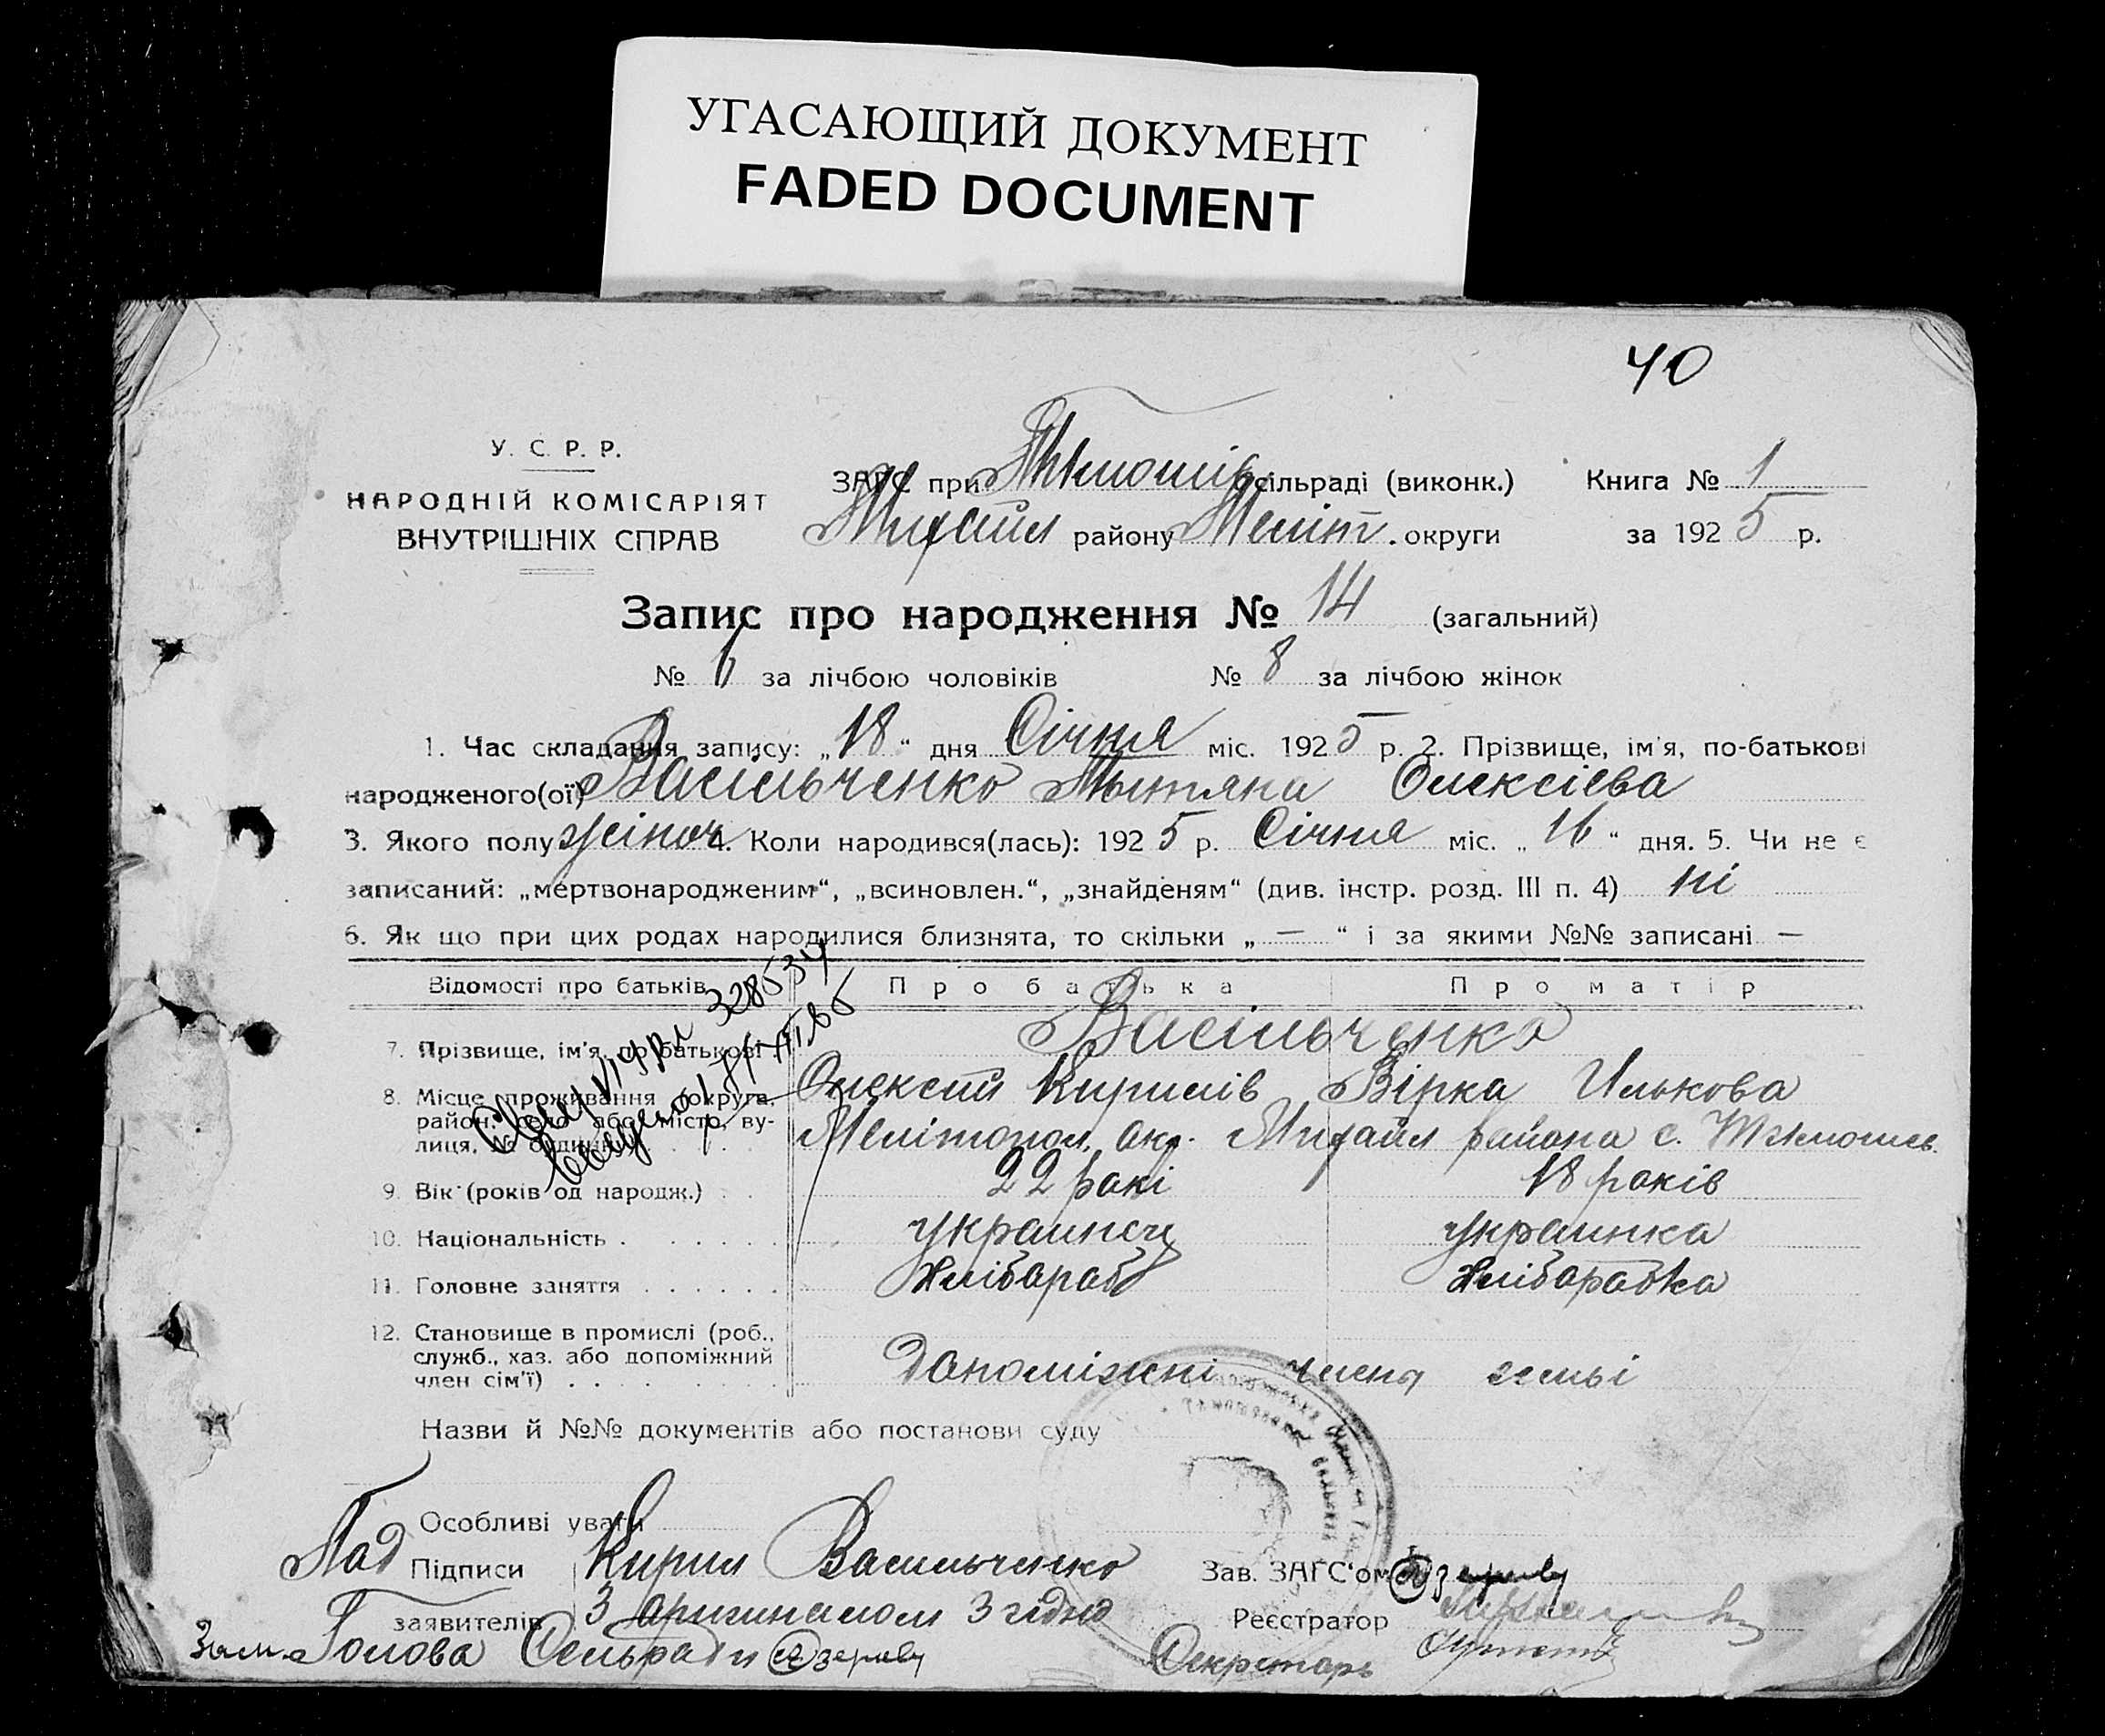 УГАСАЮЩИЙ ДОКУМЕНТ
FADED DOCUMENT
40
У. С. Р. Р.
НАРОДНІЙ КОМІСАРІЯТ
ВНУТРІШНІХ СПРАВ
ЗАГС при сільраді (виконк.) Книга № 1
Михайл району Меліт. округи за 1925 р.
Запис про народження № 14 (загальний)
№ 6 за лічбою чоловіків № 8 за лічбою жінок
1. Час складання запису: „18“ дня Січня міс. 1925 р. 2. Прізвище, ім'я, по-батькові
народженого(ої) Васільченко Тытяна Олексієва
3. Якого полу жіноч 4. Коли народився(лась): 1925 р. Січня міс. „16“ дня. 5. Чи не є
записаний: „мертвонародженим“, „всиновлен.“, „знайденям“ (див. інстр. розд. III п. 4) ні
6. Як що при цих родах народилися близнята, то скільки „—“ і за якими №№ записані —
Відомості про батьків Про батька Про матір
7. Прізвище, ім'я, по батькові Васільченко
Олексій Кирилів Вірка Илькова
8. Місце проживання (округа, район, село або місто, вулиця, № будинку) Мелітопол. окр. Михайл района с.
9. Вік (років од народж.) 22 рокі 18 років
10. Національність украинец украинка
11. Головне заняття Хлібароб Хлібаробка
12. Становище в промислі (роб.,
служб., хаз. або допоміжний
член сім'ї) Допоміжні члены семьі
328534
Назви й №№ документів або постанови суду
Особливі уваги
Підписи Кирил Васильченко Зав. ЗАГС'ом
заявителів З аригиналом Згідно Реєстратор
Зам. Голова Сельради Секретарь